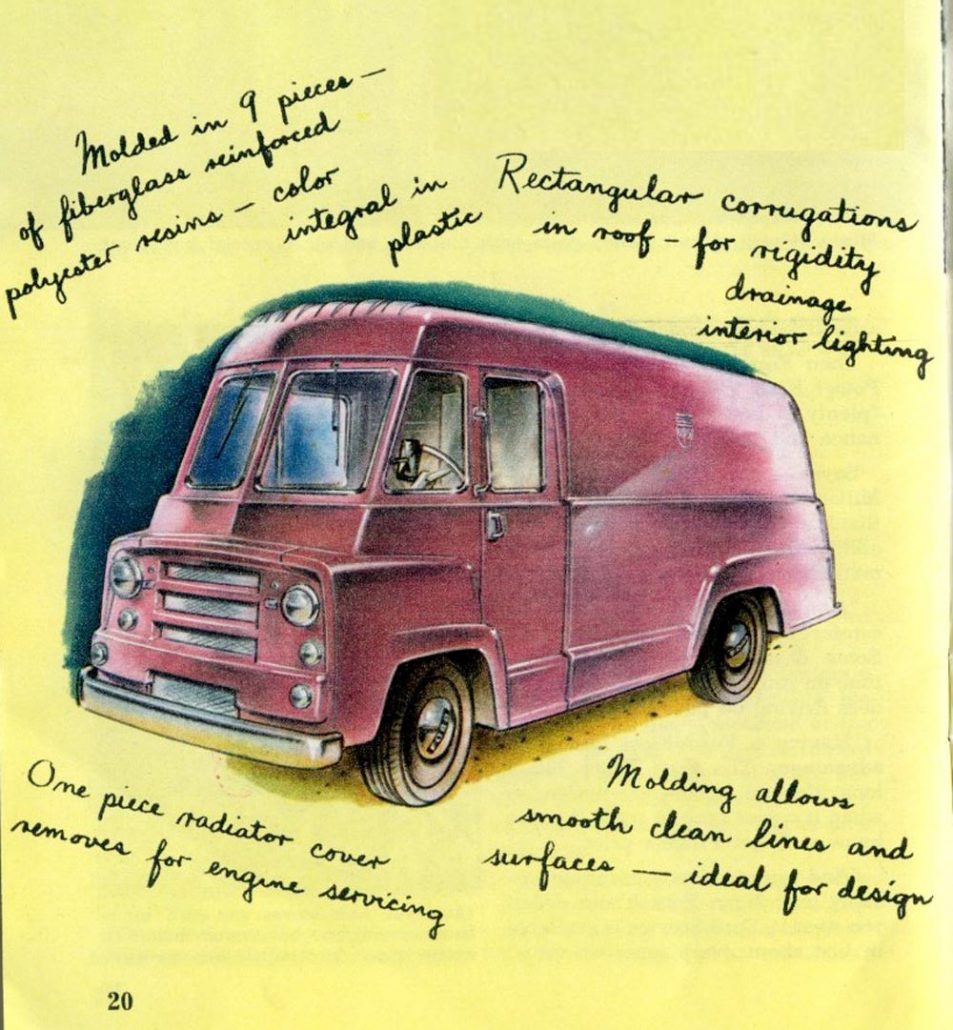 Molded in 9 pieces —
of fiberglass reinforced
polyester resins — color
integral in
plastic
Rectangular corrugations
in roof – for rigidity
drainage
interior lighting
One piece radiator cover
removes for engine servicing
Molding allows
smooth clean lines and
surfaces — ideal for design
20